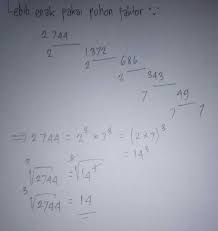 Lebih enak pakai pohon faktor
2744
2 1372
2 686
2 343
7 49
7 7
⇒ 2744 = 2³ × 7³ = (2×7)³
= 14³
³√2744 = ³√14³
³√2744 = 14